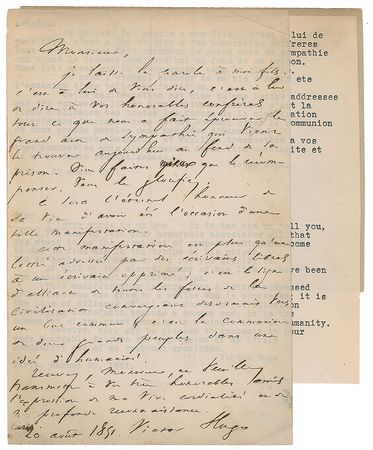 Monsieur,
je laisse la parole à mon fils.
c'est à lui de vous dire, c'est à lui
de dire à vos honorables confrères
tout ce que nous a fait éprouver le
grand acte de sympathie qui vient
le trouver aujourd'hui au fond de sa
prison. Vous faites mieux que le récom-
penser. Vous le glorifiez.
ce sera l'éternel honneur de
sa vie d'avoir été l'occasion d'une
telle manifestation.
votre manifestation est plus qu'une
lettre adressée par des écrivains libres
à un écrivain opprimé; c'est le signe
d'alliance de toutes les forces de la
civilisation convergeant désormais vers
un but commun; c'est la communion
de deux grands peuples dans une
idée d'humanité.
Recevez, Monsieur, et veuillez
transmettre à vos très honorables amis
l'expression de ma vive cordialité et de
ma profonde reconnaissance.
Paris
20 août 1851 Victor Hugo
lui de
freres
mpathie
on.
ete
addressee
t la
ation
ommunion
a vos
ite et
ll you,
that
come
ve been
ssed
it is
on
umanity.
our